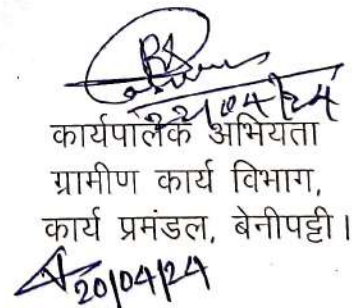 22/04/24
कार्यपालक अभियंता
ग्रामीण कार्य विभाग,
कार्य प्रमंडल, बेनीपट्टी।
20/04/24